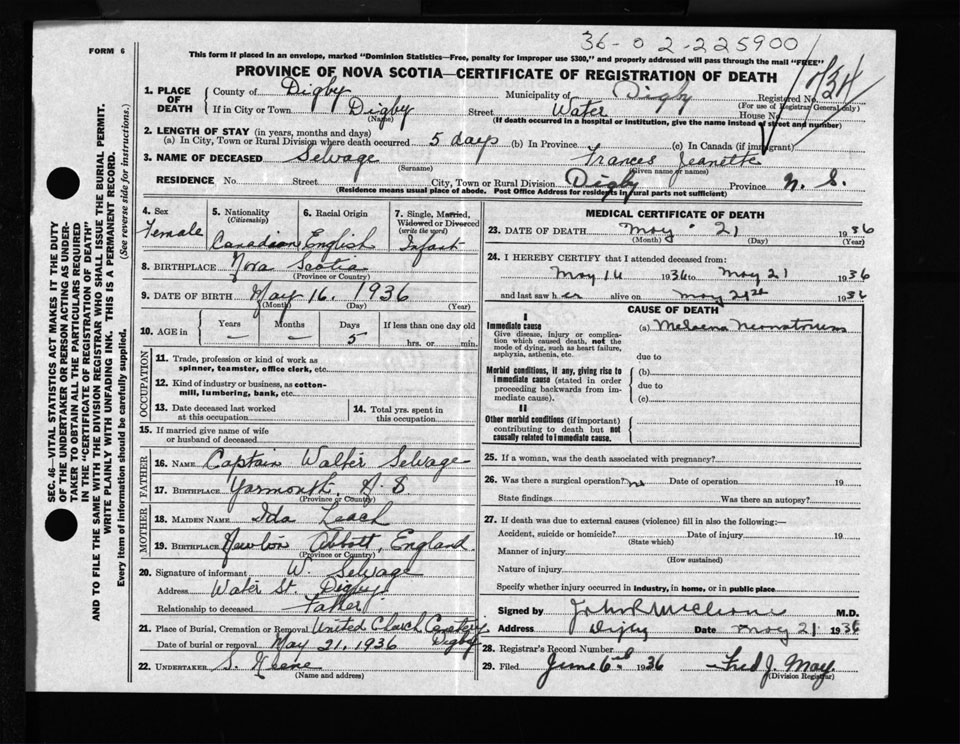 36-02-225900
FORM 6
This form if placed in an envelope, marked "Dominion Statistics—Free, penalty for improper use $300," and properly addressed will pass through the mail "FREE"
PROVINCE OF NOVA SCOTIA—CERTIFICATE OF REGISTRATION OF DEATH
1. PLACE OF DEATH County of Digby Municipality of Digby Registered No.
(For use of Registrar General only)
If in City or Town Digby Street Water House No.
(Name) (If death occurred in a hospital or institution, give the name instead of street and number)
2. LENGTH OF STAY (in years, months and days)
(a) In City, Town or Rural Division where death occurred 5 days (b) In Province (c) In Canada (if immigrant)
3. NAME OF DECEASED Selvage Frances Jeanette
(Surname) (Given name or names)
RESIDENCE No. Street City, Town or Rural Division Digby Province N. S.
(Residence means usual place of abode. Post Office Address for residents in rural parts not sufficient)
4. Sex Female
5. Nationality (Citizenship) Canadian
6. Racial Origin English
7. Single, Married, Widowed or Divorced (write the word) Infant
8. BIRTHPLACE Nova Scotia
(Province or Country)
9. DATE OF BIRTH May 16, 1936
(Month) (Day) (Year)
10. AGE in Years – Months – Days 5 If less than one day old hrs. or min.
OCCUPATION
11. Trade, profession or kind of work as spinner, teamster, office clerk, etc.
12. Kind of industry or business, as cotton-mill, lumbering, bank, etc.
13. Date deceased last worked at this occupation
14. Total yrs. spent in this occupation
15. If married give name of wife or husband of deceased
FATHER
16. NAME Captain Walter Selvage
17. BIRTHPLACE Yarmouth, N. S.
(Province or Country)
MOTHER
18. MAIDEN NAME Ida Leach
19. BIRTHPLACE Newton Abbott, England
(Province or Country)
20. Signature of informant W. Selvage
Address Water St. Digby
Relationship to deceased Father
21. Place of Burial, Cremation or Removal United Church Cemetery Digby
Date of burial or removal May 21, 1936
22. UNDERTAKER S. Keene
(Name and address)
MEDICAL CERTIFICATE OF DEATH
23. DATE OF DEATH May 21 1936
(Month) (Day) (Year)
24. I HEREBY CERTIFY that I attended deceased from:
May 16 1936 to May 21 1936
and last saw her alive on May 21st 1936
CAUSE OF DEATH
I
Immediate cause
Give disease, injury or complication which caused death, not the mode of dying, such as heart failure, asphyxia, asthenia, etc.
(a) Melaena Neonatorum
due to
Morbid conditions, if any, giving rise to immediate cause (stated in order proceeding backwards from immediate cause).
(b)
due to
(c)
II
Other morbid conditions (if important) contributing to death but not causally related to immediate cause.
25. If a woman, was the death associated with pregnancy?
26. Was there a surgical operation? No Date of operation 19
State findings Was there an autopsy?
27. If death was due to external causes (violence) fill in also the following:—
Accident, suicide or homicide? Date of injury 19
(State which)
Manner of injury
(How sustained)
Nature of injury
Specify whether injury occurred in industry, in home, or in public place
Signed by M.D.
Address Digby Date May 21 1936
28. Registrar's Record Number
29. Filed June 6 1936 Fred J. May
(Division Registrar)
SEC. 46—VITAL STATISTICS ACT MAKES IT THE DUTY
OF THE UNDERTAKER OR PERSON ACTING AS UNDER-
TAKER TO OBTAIN ALL THE PARTICULARS REQUIRED
IN THE "CERTIFICATE OF REGISTRATION OF DEATH"
AND TO FILE THE SAME WITH THE DIVISION REGISTRAR WHO SHALL ISSUE THE BURIAL PERMIT.
WRITE PLAINLY WITH UNFADING INK. THIS IS A PERMANENT RECORD.
Every item of information should be carefully supplied. (See reverse side for instructions.)